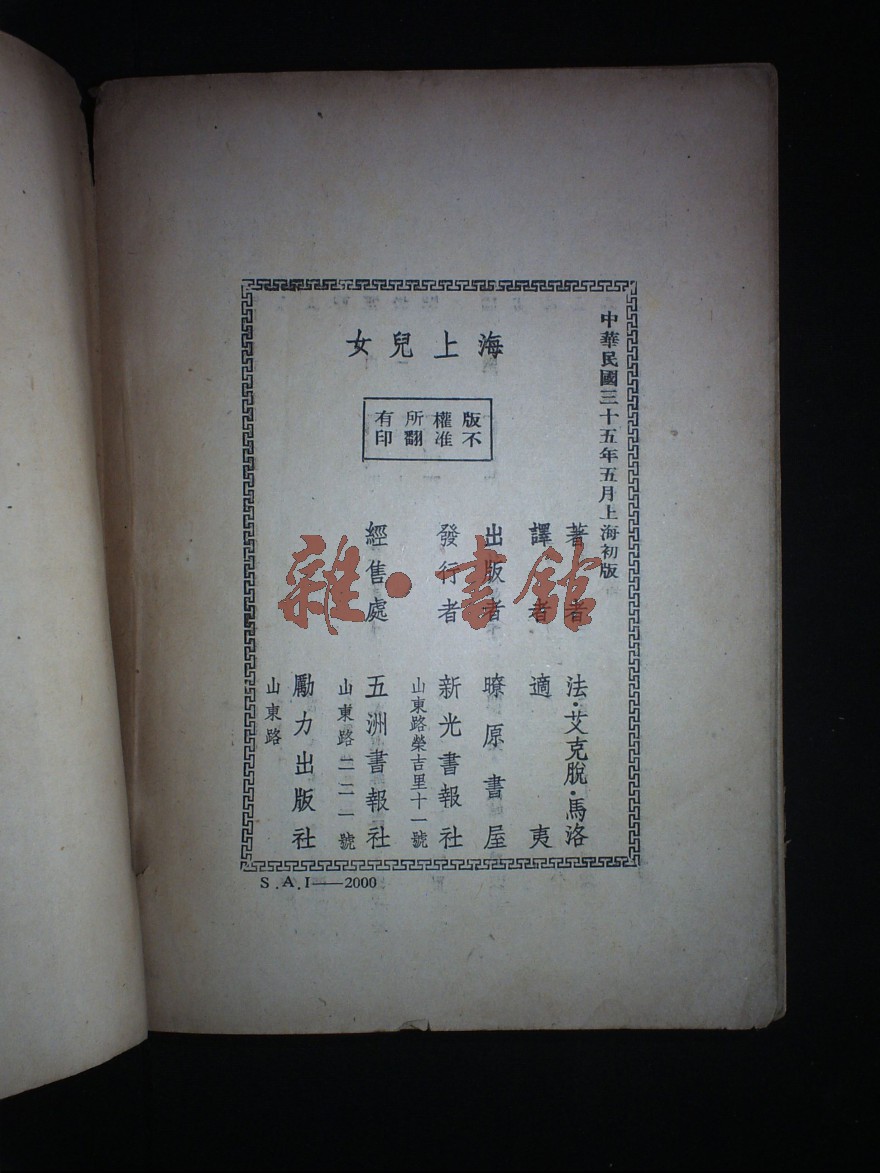 中華民國三十五年五月上海初版
海上兒女
版權所有
不准翻印
著者 法·艾克脫·馬洛
譯者 適夷
出版者 暸原書屋
發行者 新光書報社
山東路榮吉里十一號
經售處 五洲書報社
山東路二二一號
勵力出版社
山東路
S.A.I——2000
雜·書館